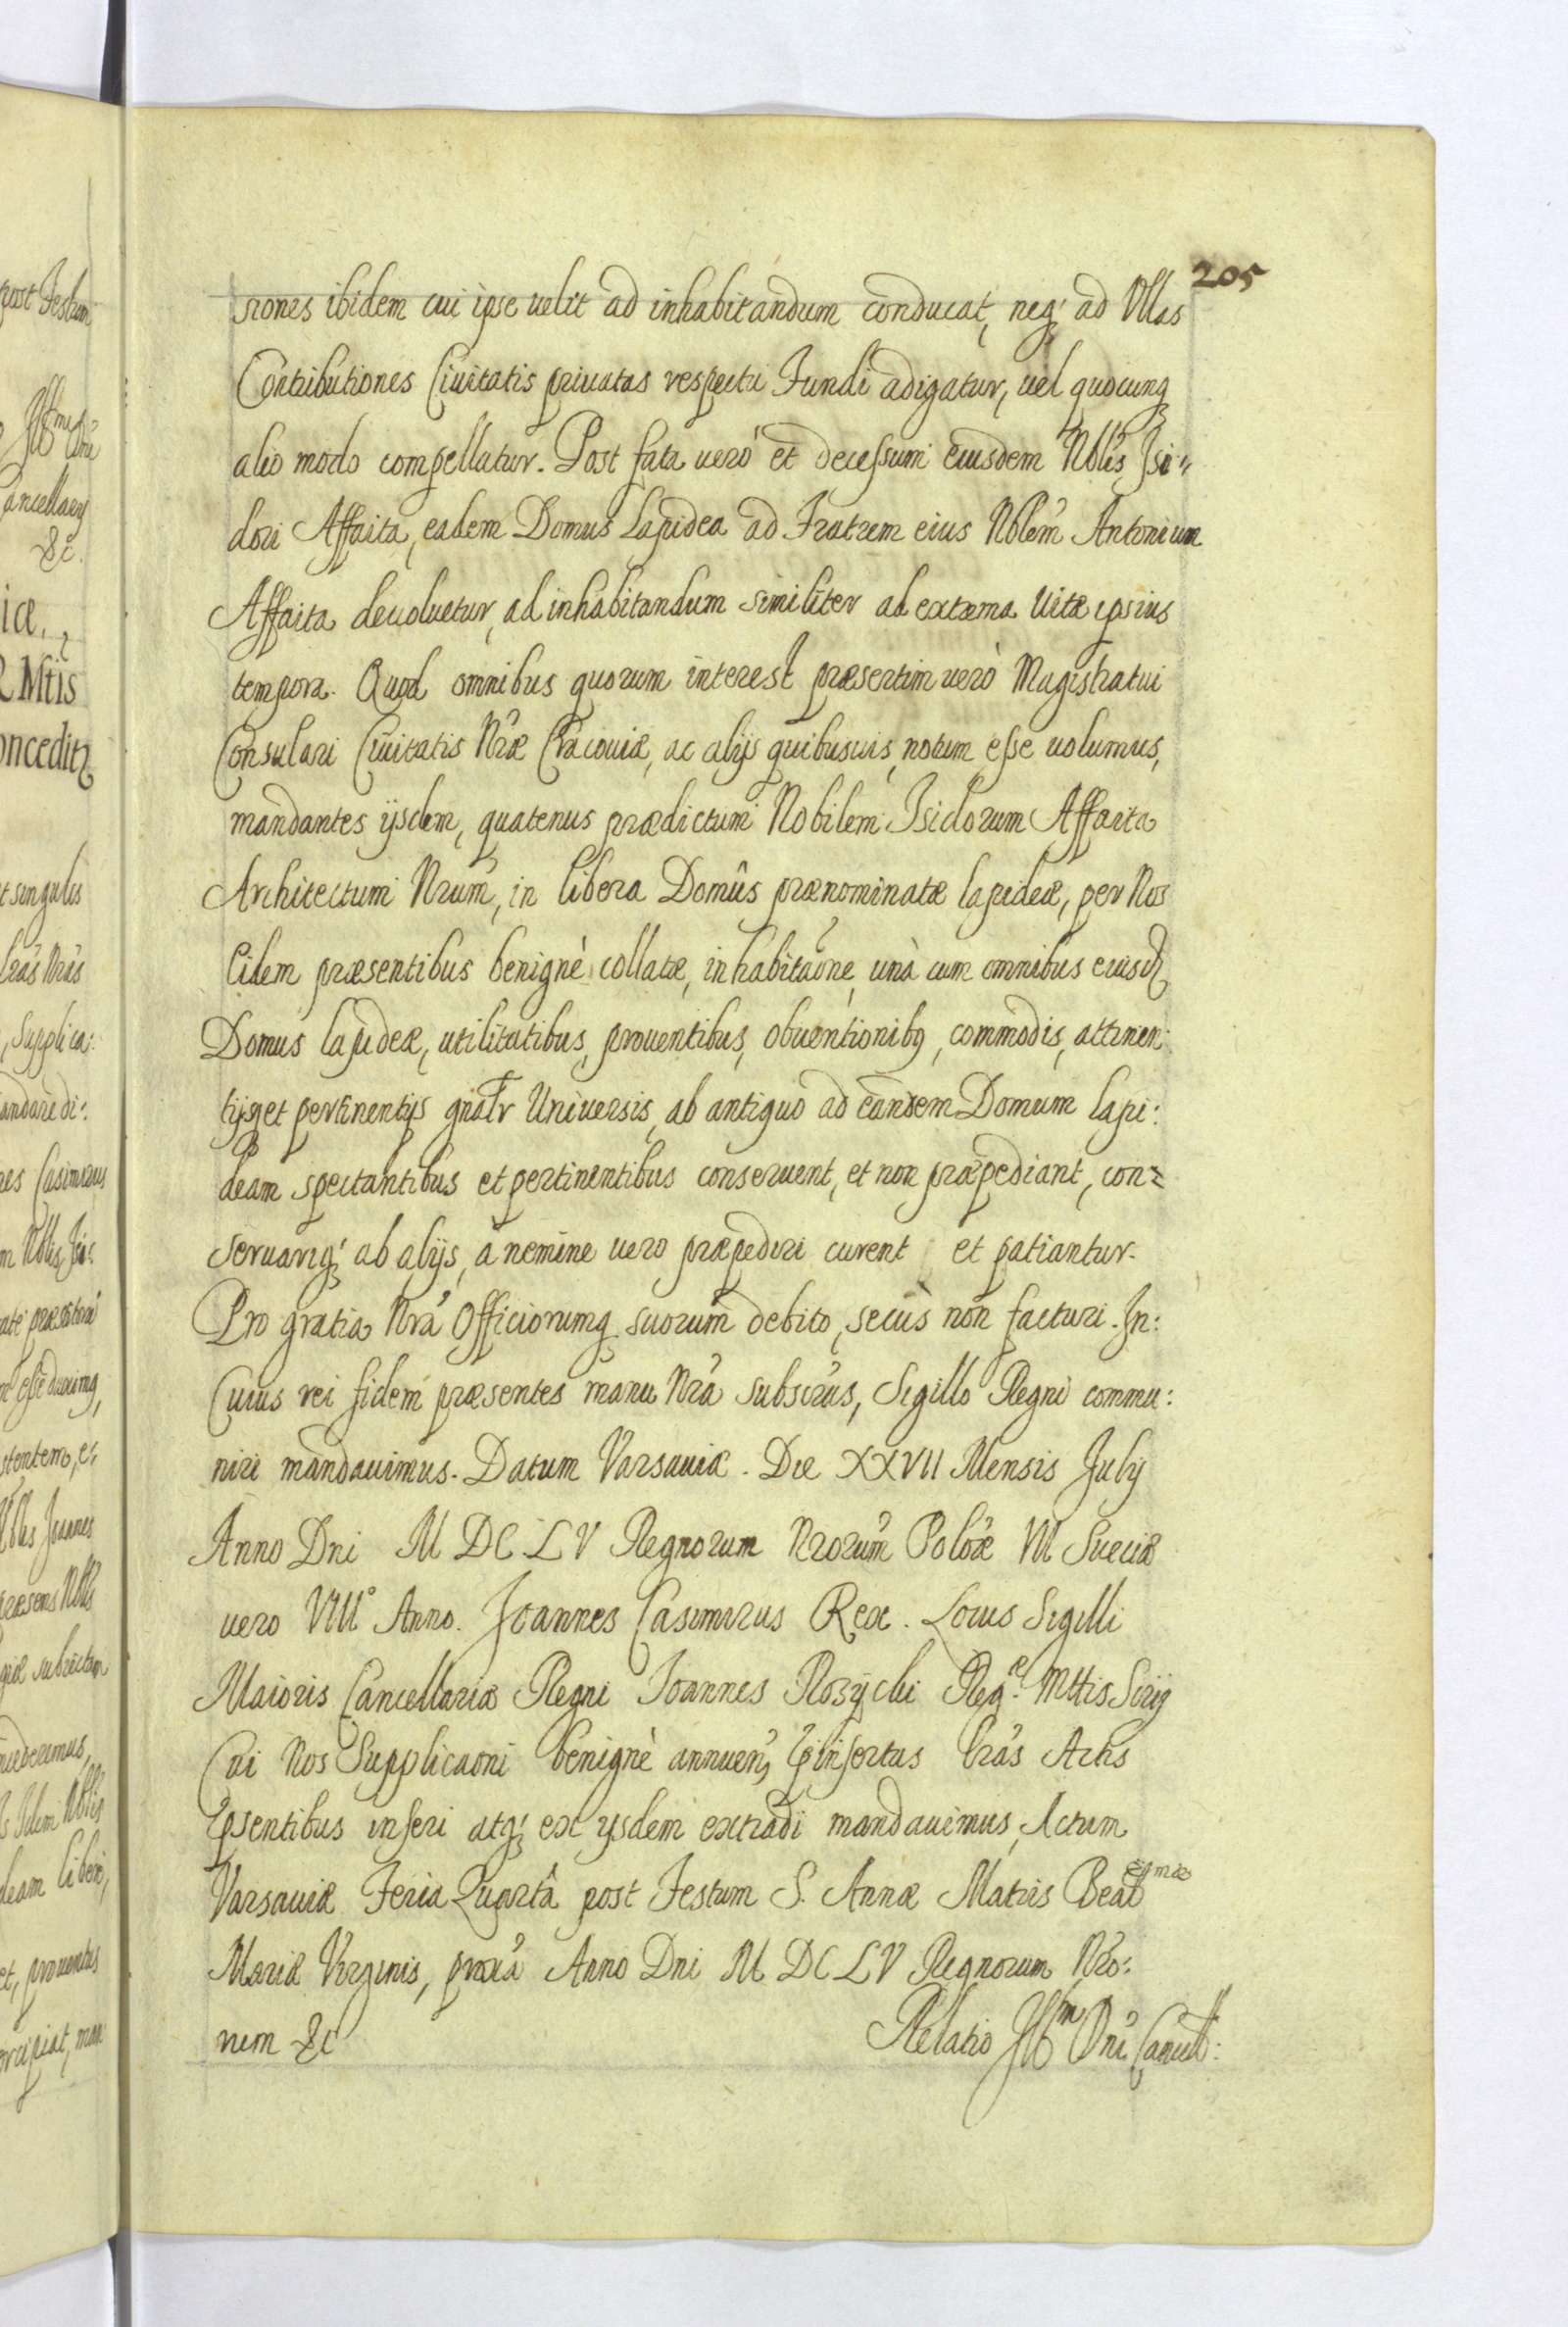 205
siones ibidem cui ipse uelit ad inhabitandum conducat, neq́ ad Ullas
Contributiones Ciuitatis priuatas respectu Fundi adigatur, uel quocunq
alio modo compellatur. Post fata uerò et decessum eiusdem Nblis Isi:
dori Affaita, eadem Domus Lapidea ad Fratrem eius Nblem Antonium
Affaita deuoluetur, ad inhabitandum similiter ad extrema Uitæ ipsius
tempora. Quod omnibus quorum interest præsertim uerò Magistratui
Consulari Ciuitatis Nræ Cracouiæ, ac alijs quibusuis, notum esse uolumus,
mandantes ijsdem, quatenus prædictum Nobilem Isidorum Affaita
Architectum Nrum, in libera Domûs prænominatæ lapideæ, per Nos
Eidem præsentibus benignè collatæ, inhabitaone, unà cum omnibus eiusd
Domus lapideæ, utilitatibus, prouentibus, obuentionibq, commodis, attinen:
tijsq et pertinentijs gnalr Uniuersis, ab antiquo ad eandem Domum lapi:
deam spectantibus et pertinentibus conseruent, et non præpediant, con=
seruariq́ ab alijs, à nemine uero præpediri curent et patiantur.
Pro gratia Nra Officiorumq suorum debito, secùs non facturi. In:
Cuius rei fidem præsentes manu Nra subscras, Sigillo Regni commu:
niri mandauimus. Datum Varsauiæ. Die XXVII Mensis July
Anno Dni M DC LV Regnorum Nrorum Polõæ VII Sueciæ
uero VIII° Anno. Joannes Casimirus Rex. Locus Sigilli
Maioris Cancellariæ Regni Joannes Rozycki Regᵉ Mttis
Cui Nos Supplicaoni benignè annuen, pinsertas lras Actis
psentibus inseri atq́ ex ijsdem extradi mandauimus, Actum
Varsauiæ Feria Quartâ post Festum S. Annæ Matris Beatismæ
Mariæ Virginis, proxa Anno Dni M DC LV Regnorum Nro:
rum &c Relatio Illm Dni Cancell:
post Festum
Illmi Dni
Cancellarij
&c.
R Mtis
conceditz
et singulis
lras Nras
, Supplica:
mandare di:
Casimirus
Joannes
deam liberè,
et, prouentus